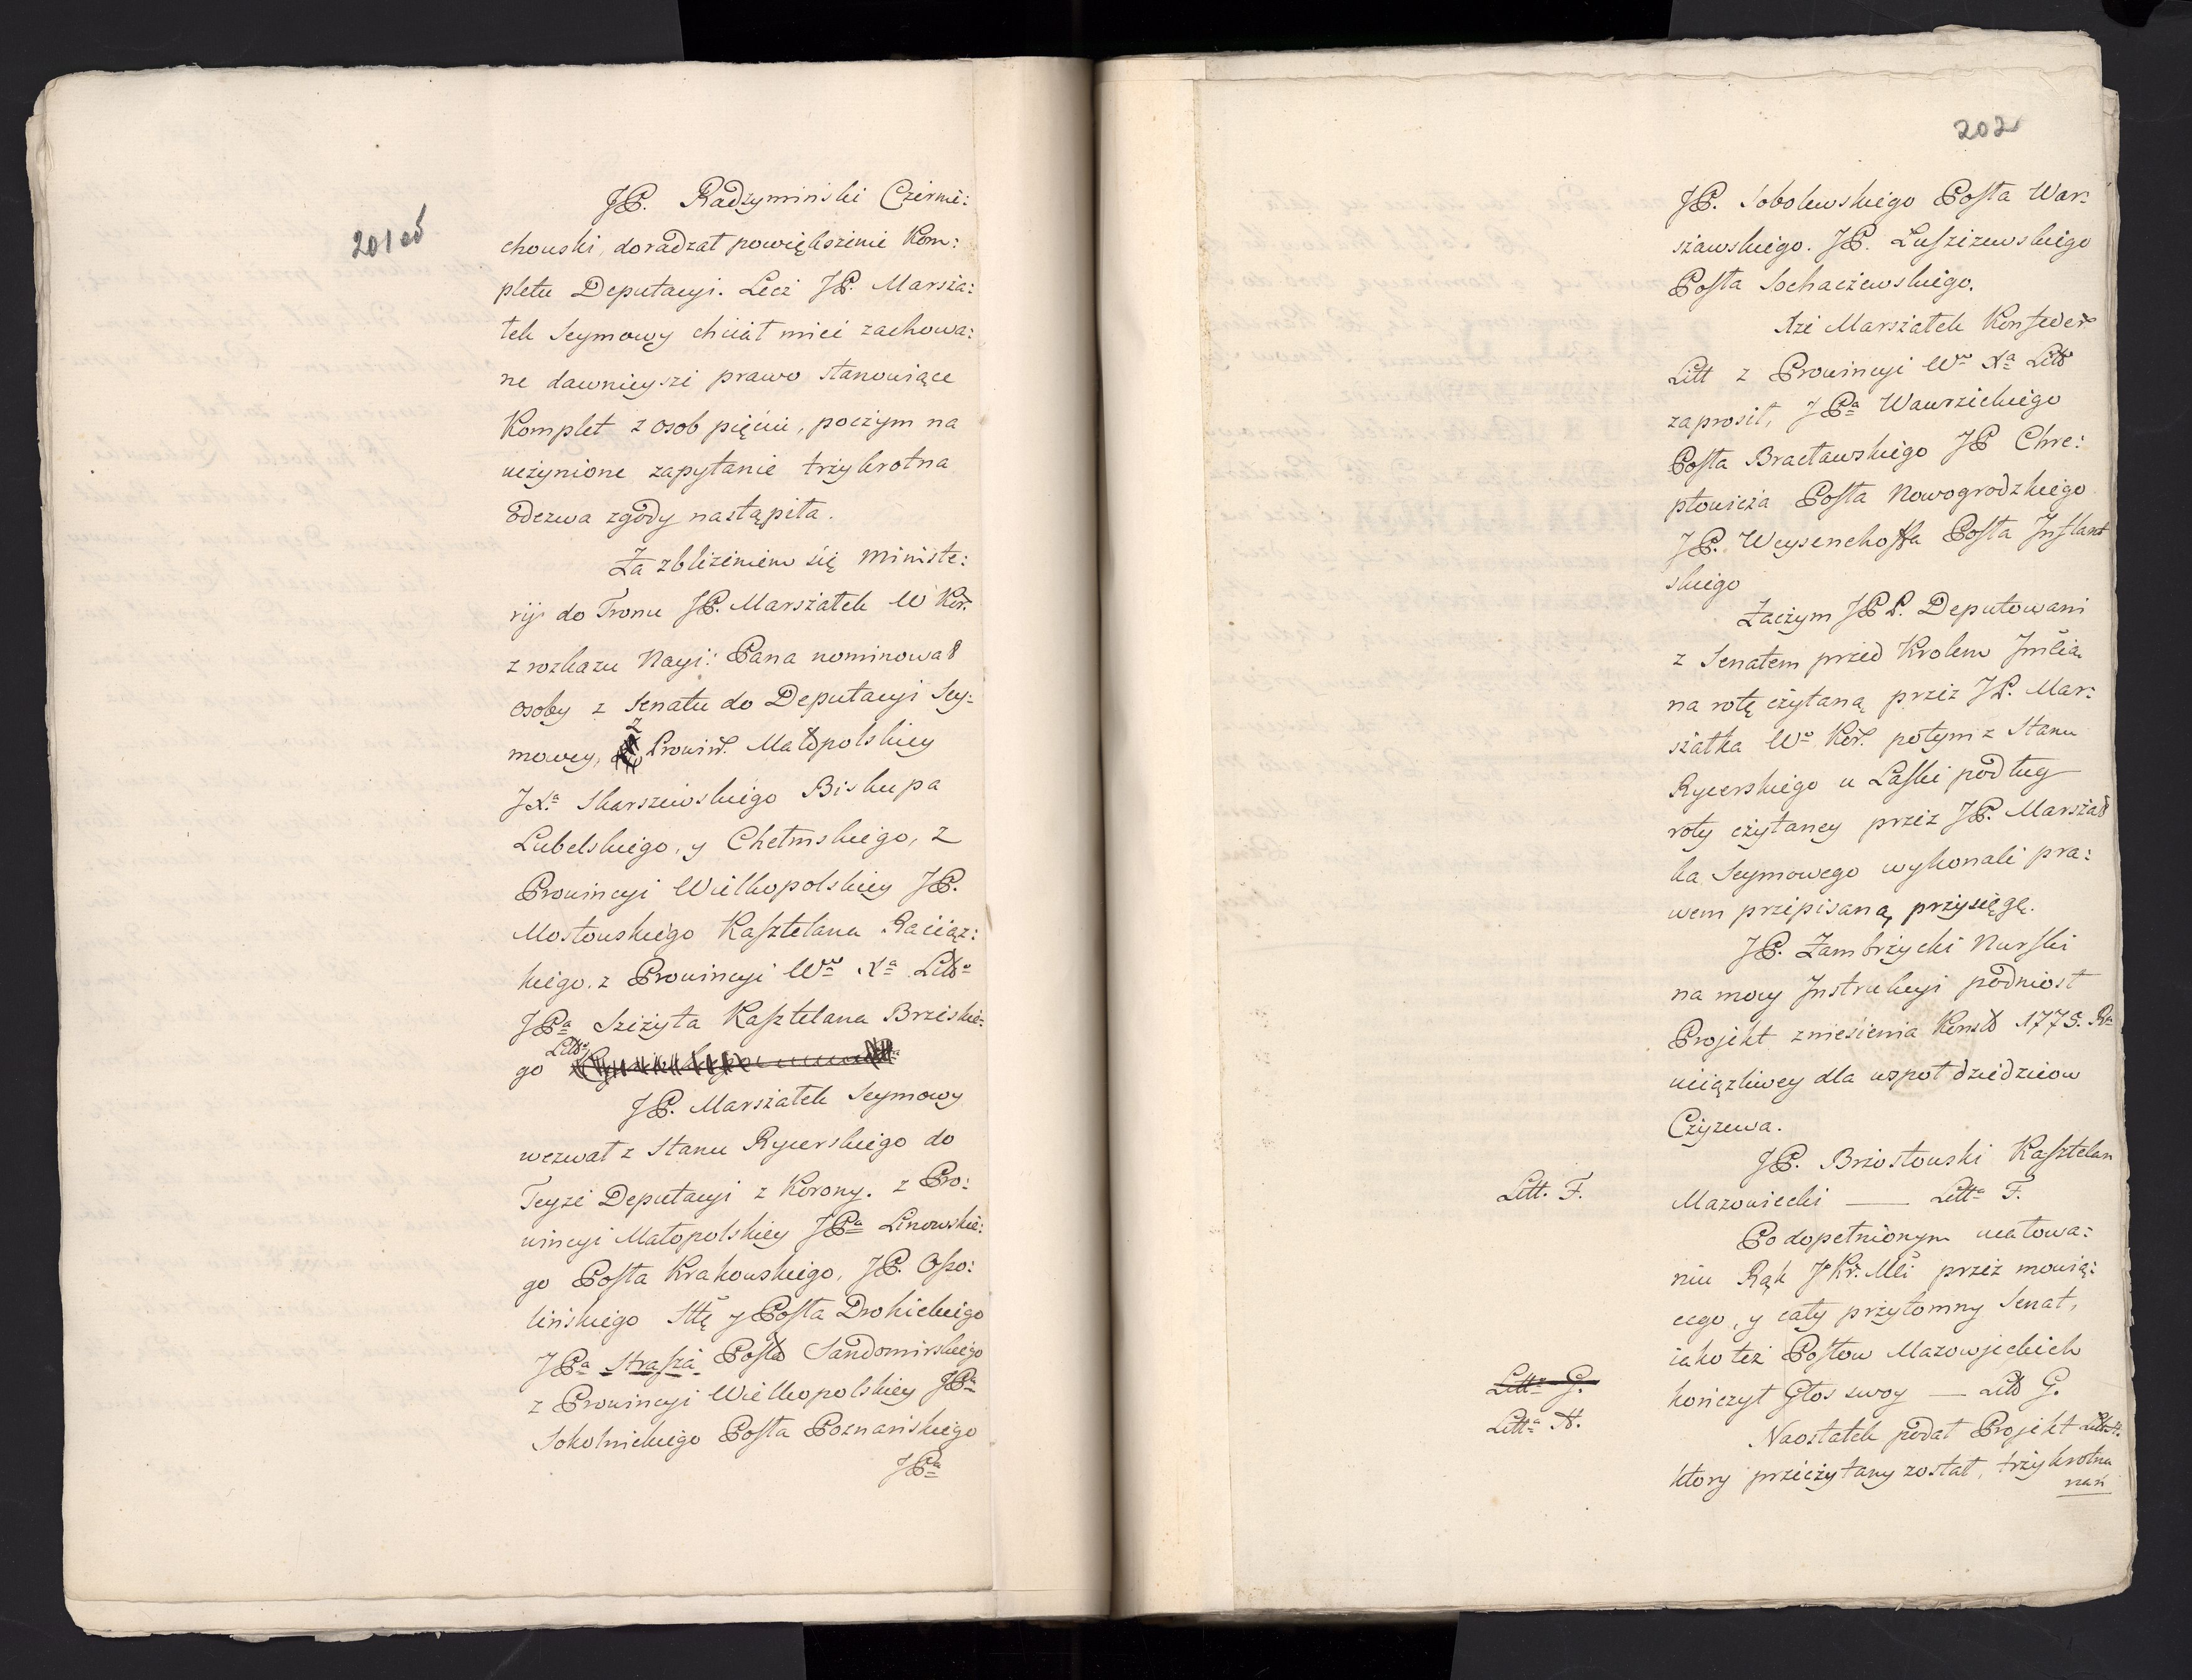 201 od
JP. Radzyminski Czernie:
chowski, doradzał powiększenie Kom:
pletu Deputacyi. Lecz JP. Marsza:
łek Seymowy chciał mieć zachowa:
ne dawnieysze prawo stanowiące
Komplet z osob pięciu, poczym na
uczynione zapytanie trzykrotna
odezwa zgody nastąpiła.
Za zbliżeniem się Ministe:
rij do Tronu JP. Marszałek W Kor.
z rozkazu Nayi: Pana nominował
osoby z Senatu do Deputacyi Sey:
mowey, z Prowin. Małopolskiey
JXa Skarszewskiego Biskupa
Lubelskiego, y Chełmskiego, z
Prowincyi Wielkopolskiey JP.
Mostowskiego Kasztelana Raciąz:
kiego. z Prowincyi Wo Xa Litto
JPa Szczyta Kasztelana Brzeskie:
go Litto
JP. Marszałek Seymowy
wezwał z Stanu Rycerskiego do
Teyże Deputacyi z Korony. z Pro:
wincyi Małopolskiey JPa Linowskie:
go Posła Krakowskiego, JP. Osso:
lińskiego Sttę y Posła Drohickiego
JPa Strasza Posła Sandomirskiego
z Prowincyi Wielkopolskiey JPa
Sokolnickiego Posła Poznańskiego
JPa
202
JP. Sobolewskiego Posła War:
szawskiego. JP. Luszczewskiego
Posła Sochaczewskiego.
Xże Marszałek Konfeder
Litt z Prowincyi Wo Xa Litt
zaprosił, JPa Wawrzeckiego
Posła Bracławskiego JP Chre:
ptowicza Posła Nowogrodzkiego
JP. Weysenhoffa Posła Inflant
skiego
Zaczym JPP. Deputowani
z Senatem przed Krolem Jmcią
na rotę czytaną przez JP. Mar:
szałka Wo Kor. potym z Stanu
Rycerskiego u Laski podług
roty czytaney przez JP. Marszał
ka Seymowego wykonali pra:
wem przepisaną przysięgę.
JP. Zambrzycki Nurski
na mocy Instrukcyi podniosł
Projekt zniesienia Konst 1775. Ru
uciązliwey dla wspoł dziedzicow
Czyzewa.
JP. Brzostowski Kasztelan
Litt. F.
Mazowiecki — Litta F.
Po dopełnionym ucałowa:
niu Rąk JKr. Mci przez mowią:
cego, y cały przytomny Senat,
iako też Posłow Mazowieckich
Litta G.
kończył Głos swoy — Litt G.
Litta H.
Naostatek podał Projekt Litta H.
ktory przeczytany został, trzykrotna
nań